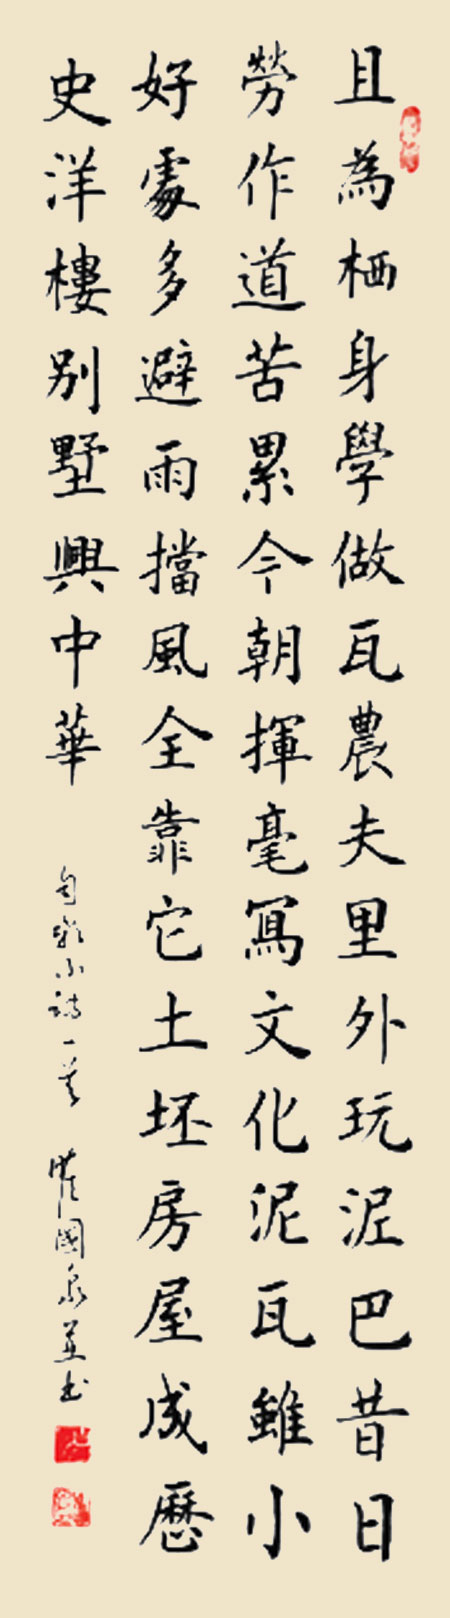 且為栖身學做瓦農夫里外玩泥巴昔日
勞作道苦累今朝揮毫寫文化泥瓦雖小
好處多避雨擋風全靠它土坯房屋成歷
史洋樓別墅興中華 小詩一首 國泉並書